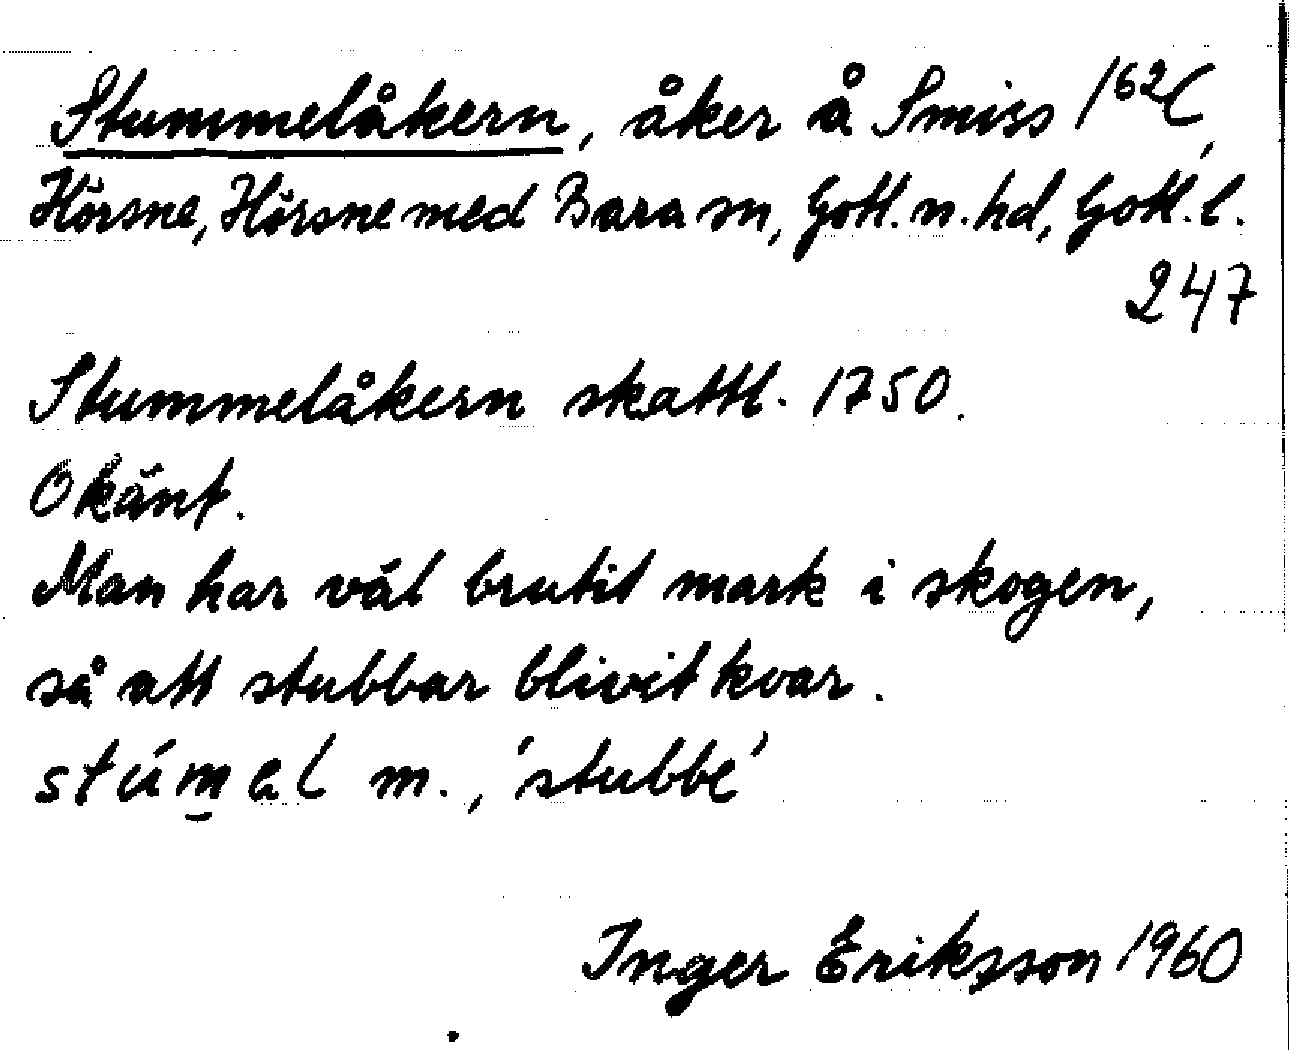 Stummelåkern, åker å Smiss 1⁶²⁽,
Hörsne, Hörsne med Bara sn, Gotl. n. hd, Gotl. l.
247
Stummelåkern skattl. 1750.
Okänt.
Man har väl brutit mark i skogen,
så att stubbar blivit kvar.
stúm̲əl m., 'stubbe'
Inger Eriksson 1960